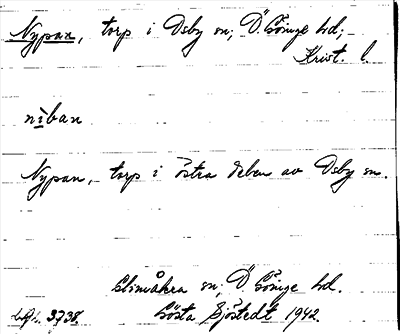 Nypan, torp i Osby sn; Ö. Göinge hd;
Krist. l.
nìban
Nypan, torp i östra delen av Osby sn.
Glimåkra sn; Ö. Göinge hd.
3738. Gösta Sjöstedt 1942.